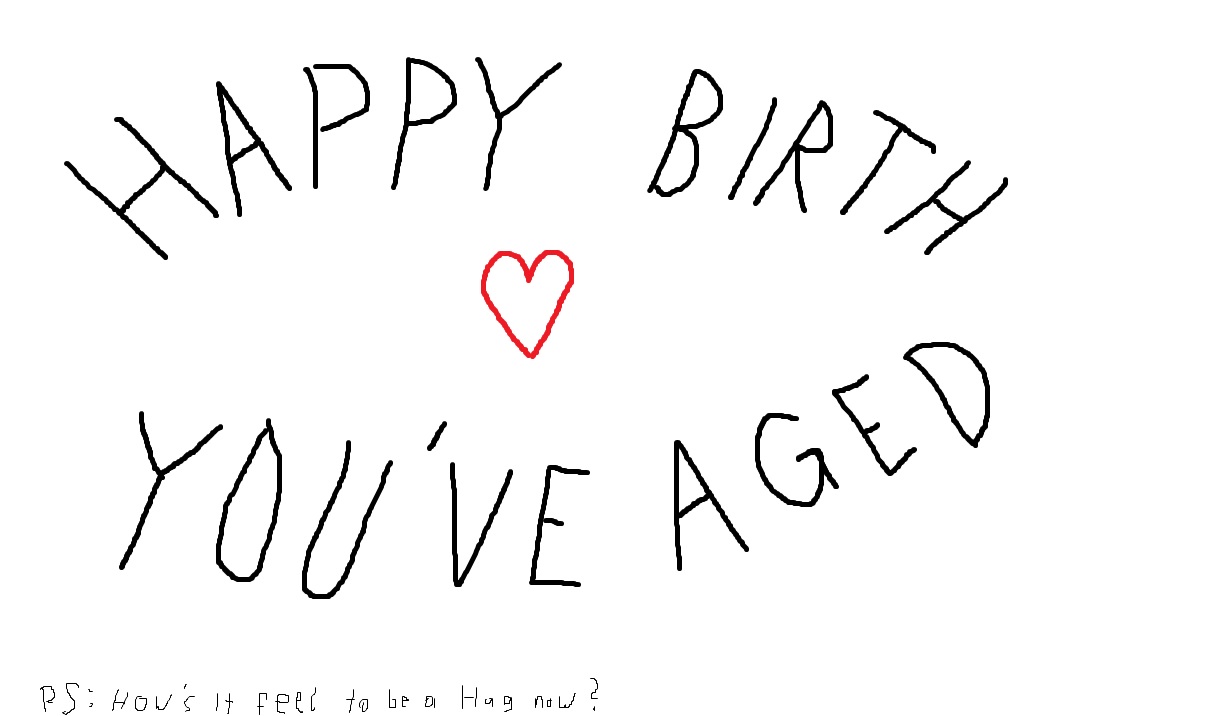 HAPPY BIRTH
YOU'VE AGED
PS: How's it feel to be a Hag now?